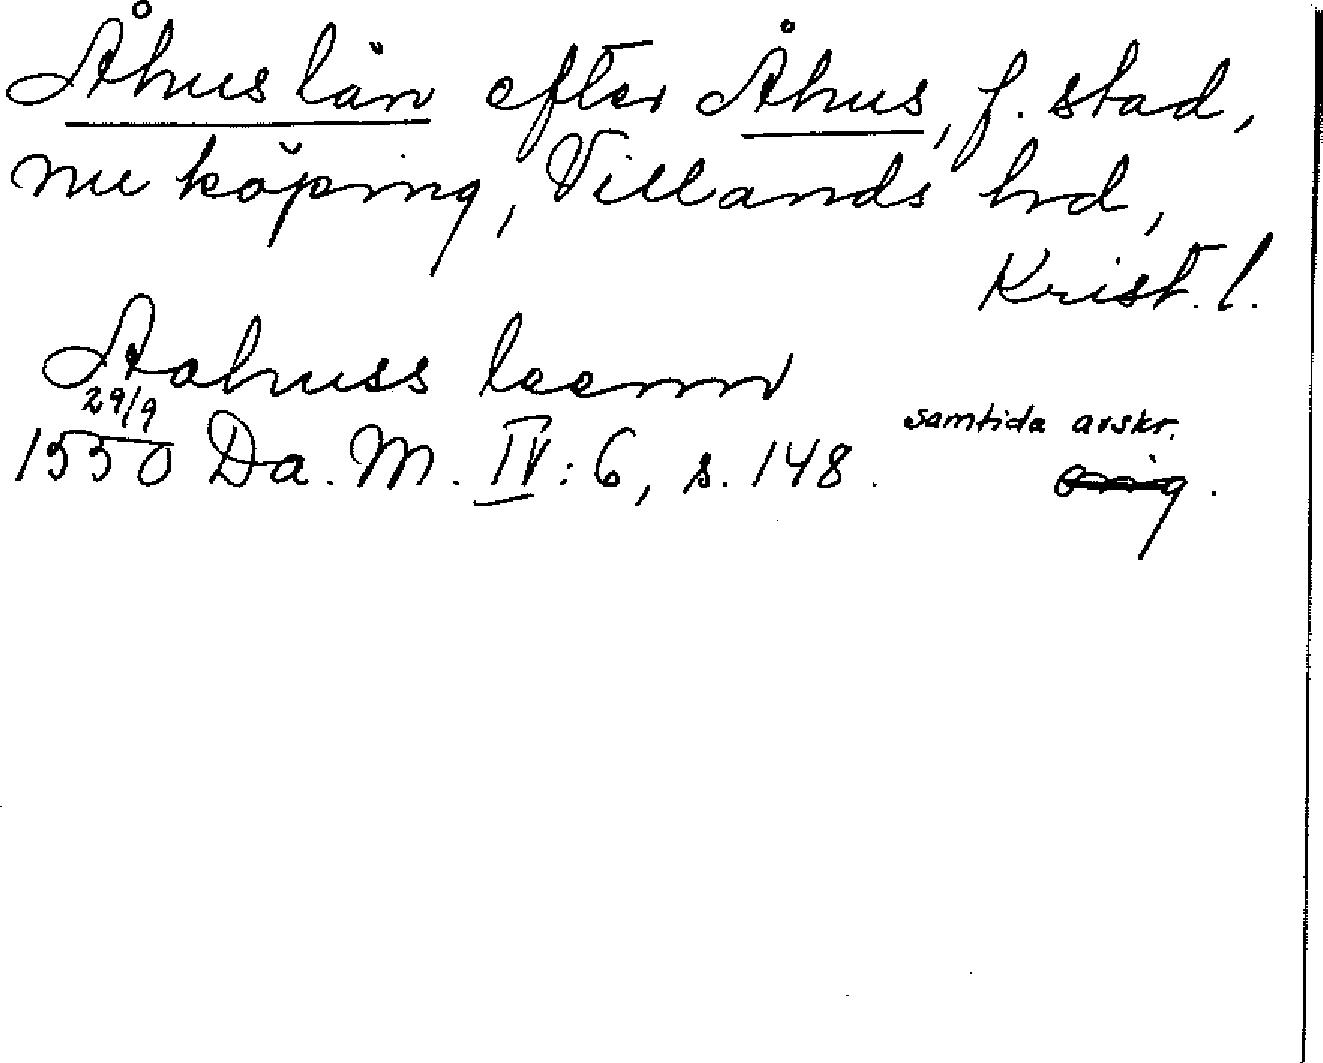 Åhus län efter Åhus, f. stad,
nu köping, Villands hd,
Krist. l.
Aahuss leenn
29/9
1550 Da. M. IV: 6, s. 148.
samtida avskr.
orig.